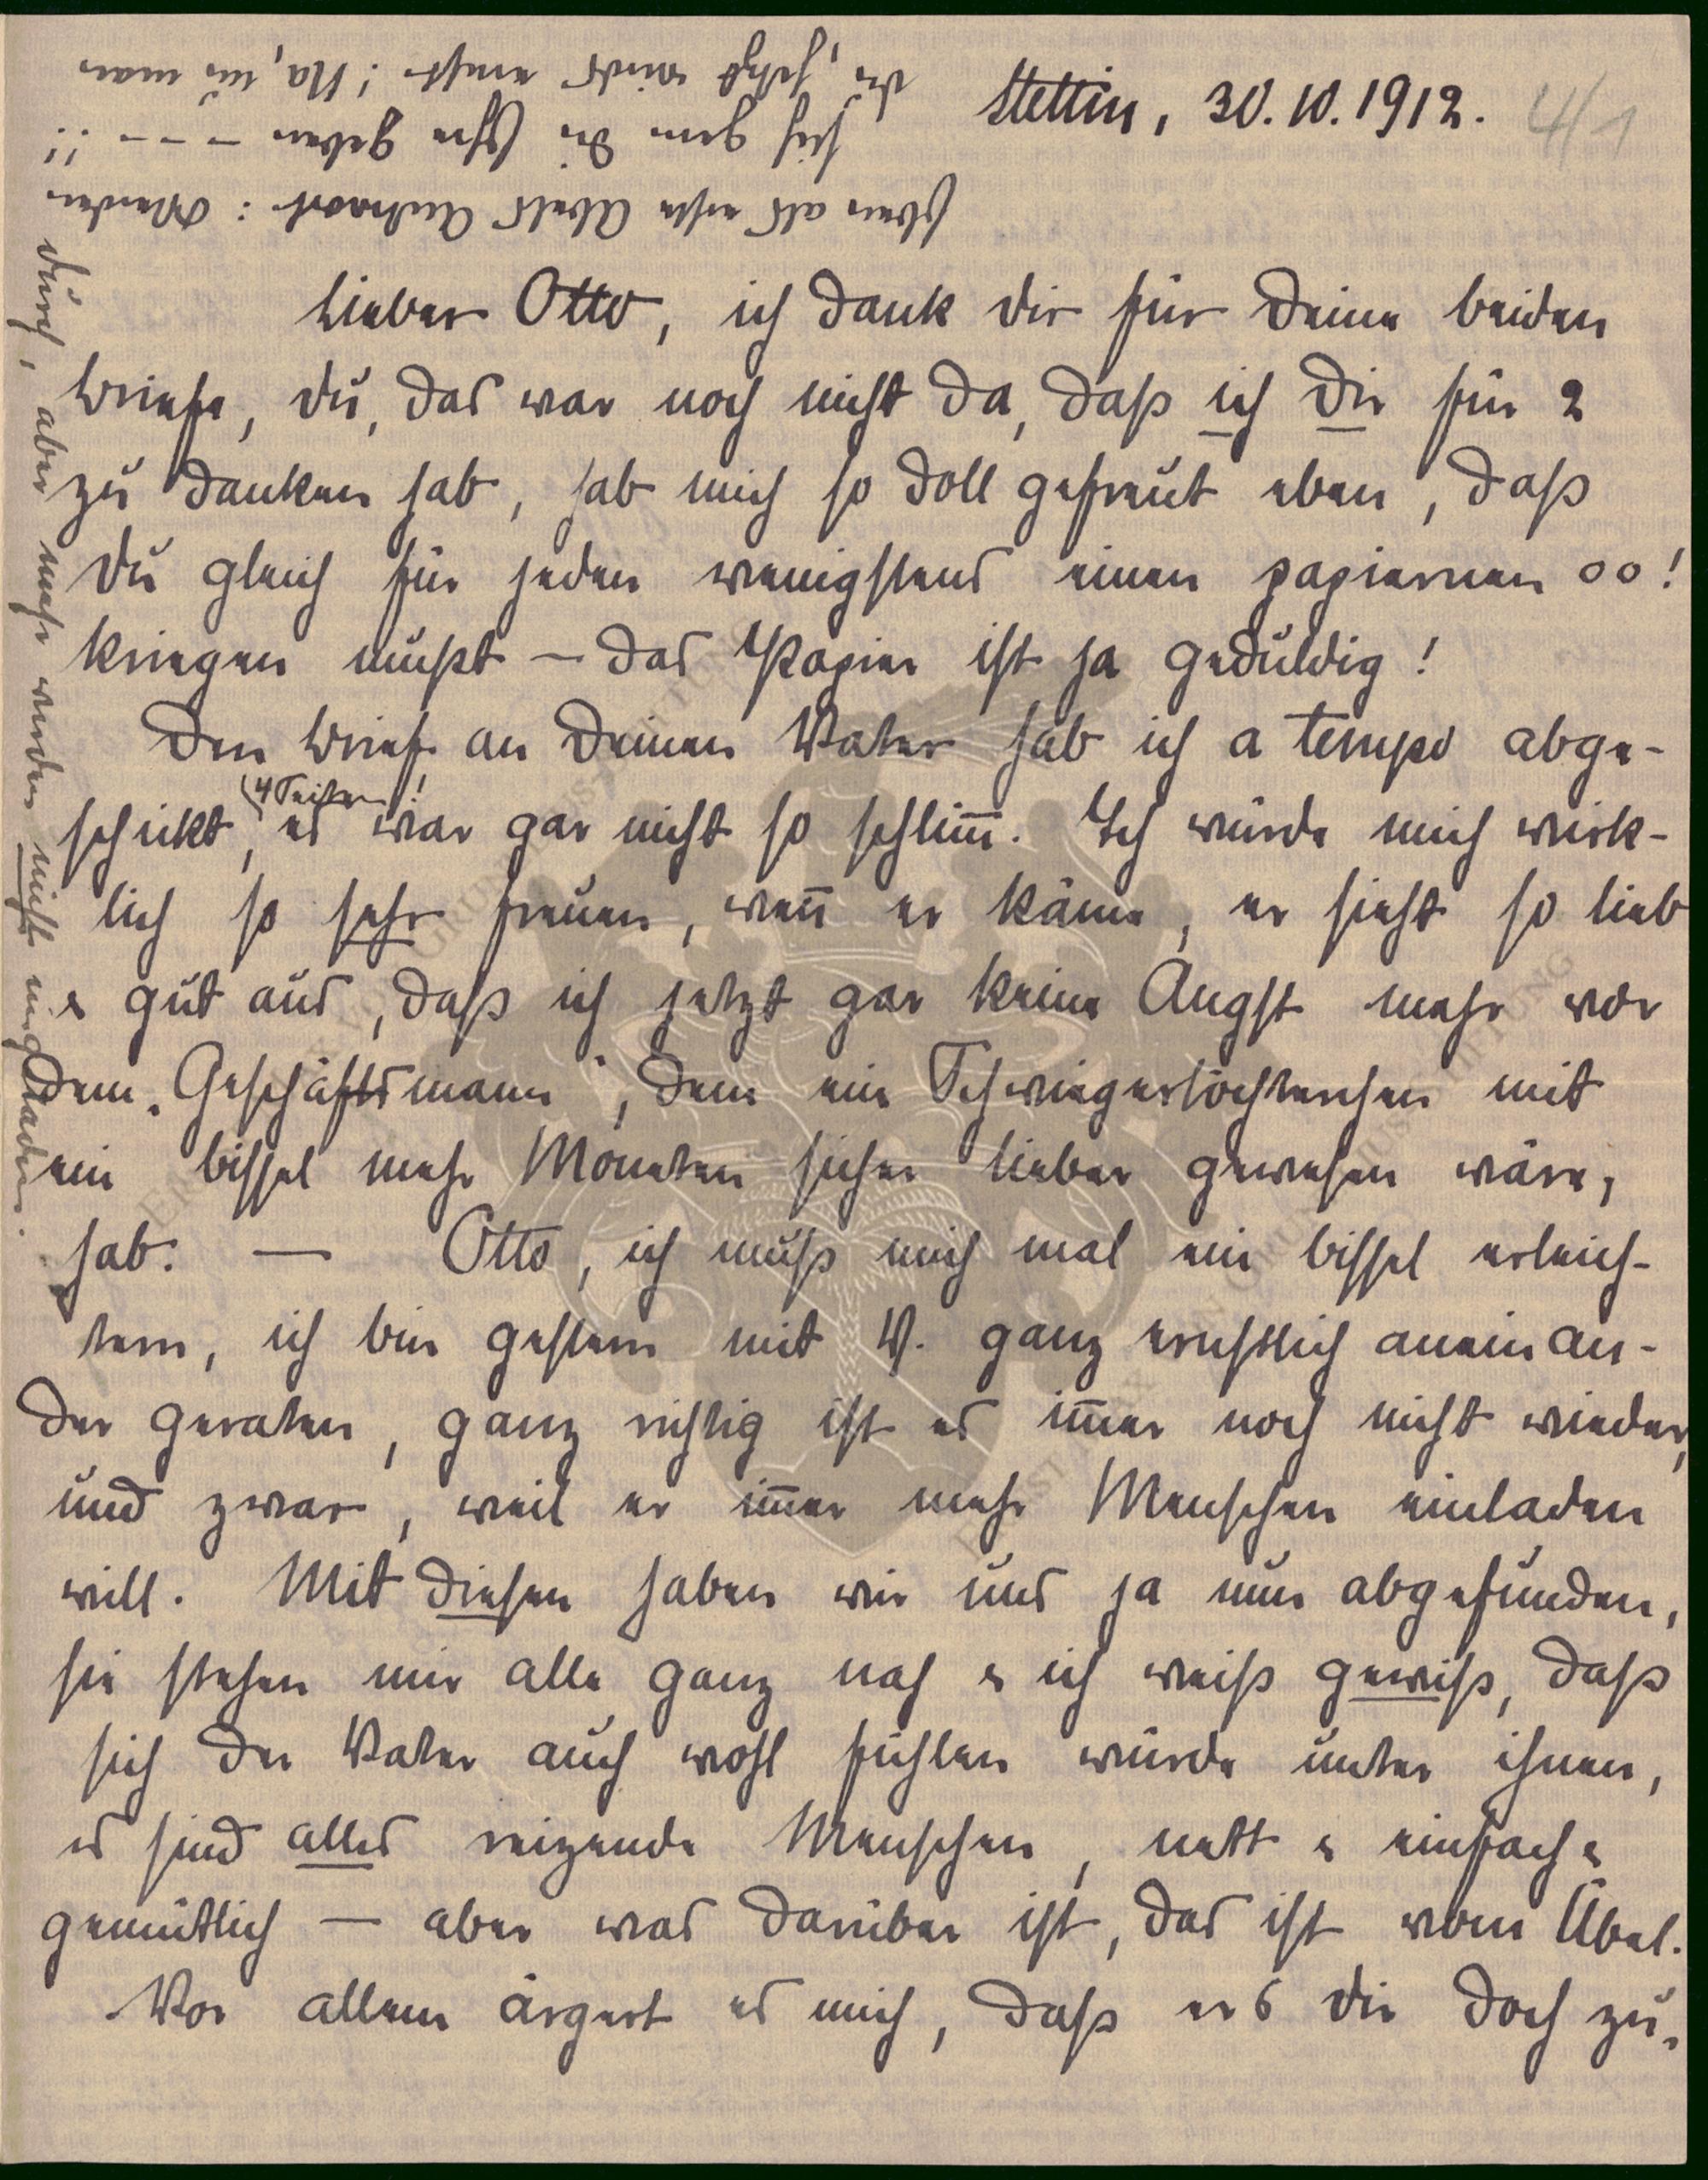 Stettin, 30.10.1912.
4/1
Lieber Otto, ich dank Dir für Deine beiden
Briefe, Du, das war noch nicht da, daß ich Dir für 2
zu danken hab, hab mich so doll gefreut eben, daß
Du gleich für jeden wenigstens einen papiernen oo!
kriegen mußt — das Papier ist ja geduldig!
Den Brief an Deinen Vater hab ich a tempo abge-
(4 Seiten!
schickt, es war gar nicht so schlim̅. Ich würde mich wirk-
lich so sehr freuen, wen̅ er käme, er sieht so lieb
& gut aus, daß ich jetzt gar keine Angst mehr vor
dem „Geschäftsmann“, dem ein Schwiegertöchterchen mit
ein bissel mehr Moneten sicher lieber gewesen wäre,
hab. — Otto, ich muß mich mal ein bissel erleich-
tern, ich bin gestern mit V. ganz ernstlich aneinan-
der geraten, ganz richtig ist es im̅er noch nicht wieder,
und zwar, weil er im̅er mehr Menschen einladen
will. Mit diesen haben wir uns ja nun abgefunden,
sie stehen mir alle ganz nah & ich weiß gewiß, daß
sich der Vater auch wohl fühlen würde unter ihnen,
es sind alles reizende Menschen, nett & einfach &
gemütlich — aber was darüber ist, das ist vom Übel.
Vor allem ärgert es mich, daß er's Dir doch zu-
durch, aber mehr werden nicht eingeladen.
schon als erste Abels Antwort: Werden
sich gern die Ehre geben - - - - !!
Du, jetzt wird's ernst! Na, nu man